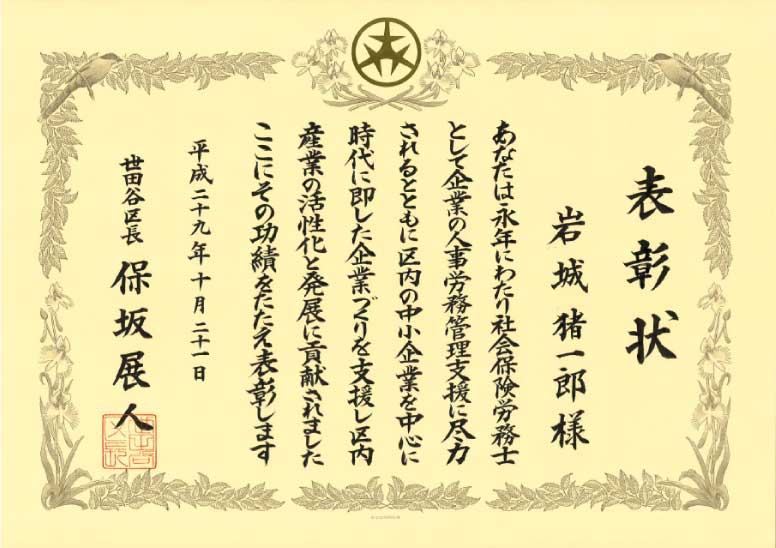 表彰状
岩城 猪一郎 様
あなたは永年にわたり社会保険労務士
として企業の人事労務管理支援に尽力
されるとともに区内の中小企業を中心に
時代に即した企業づくりを支援し区内
産業の活性化と発展に貢献されました
ここにその功績をたたえ表彰します
平成二十九年十月二十一日
世田谷区長 保坂展人